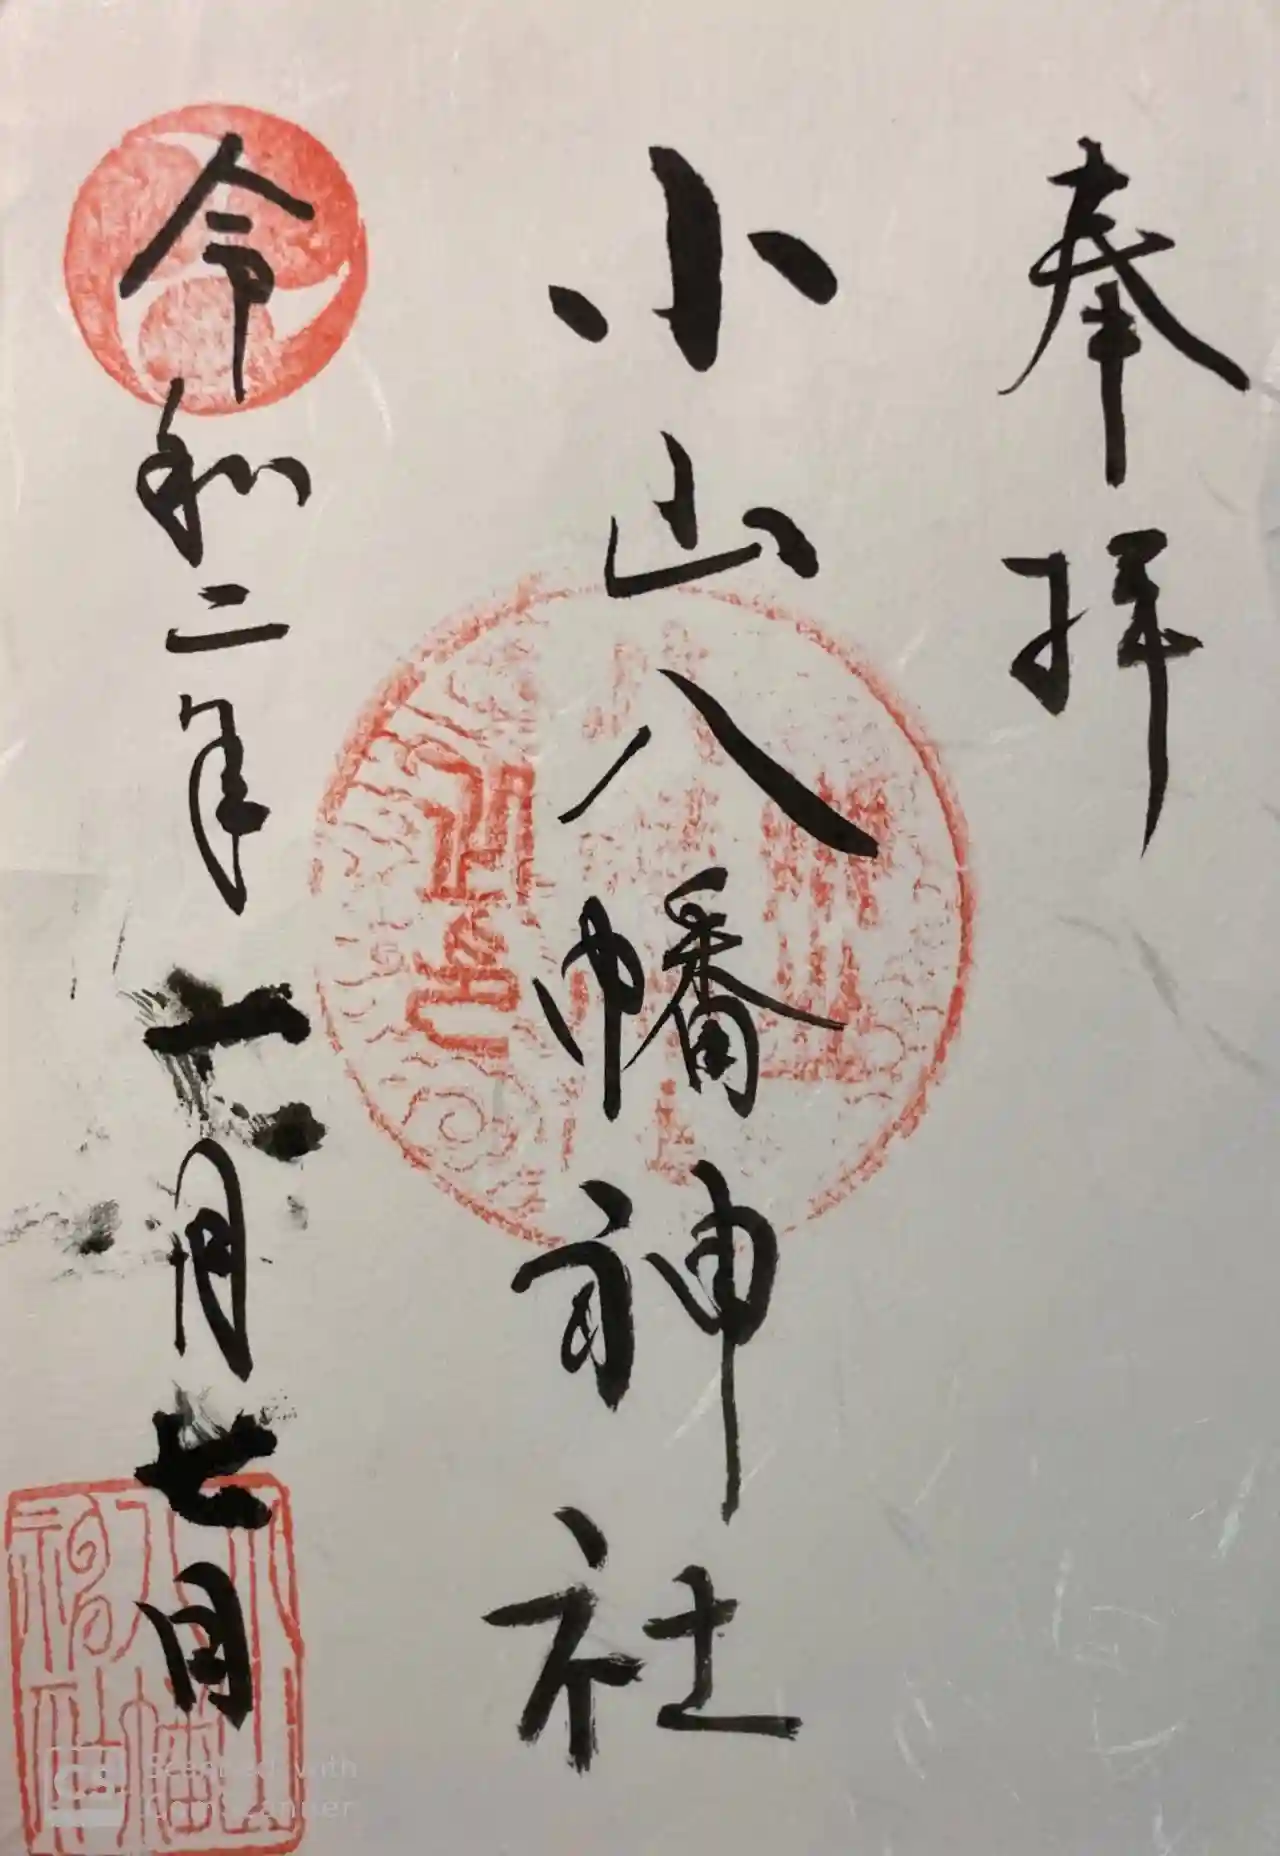 奉拝
小山八幡神社
令和二年十一月七日
Scanned with
CamScanner